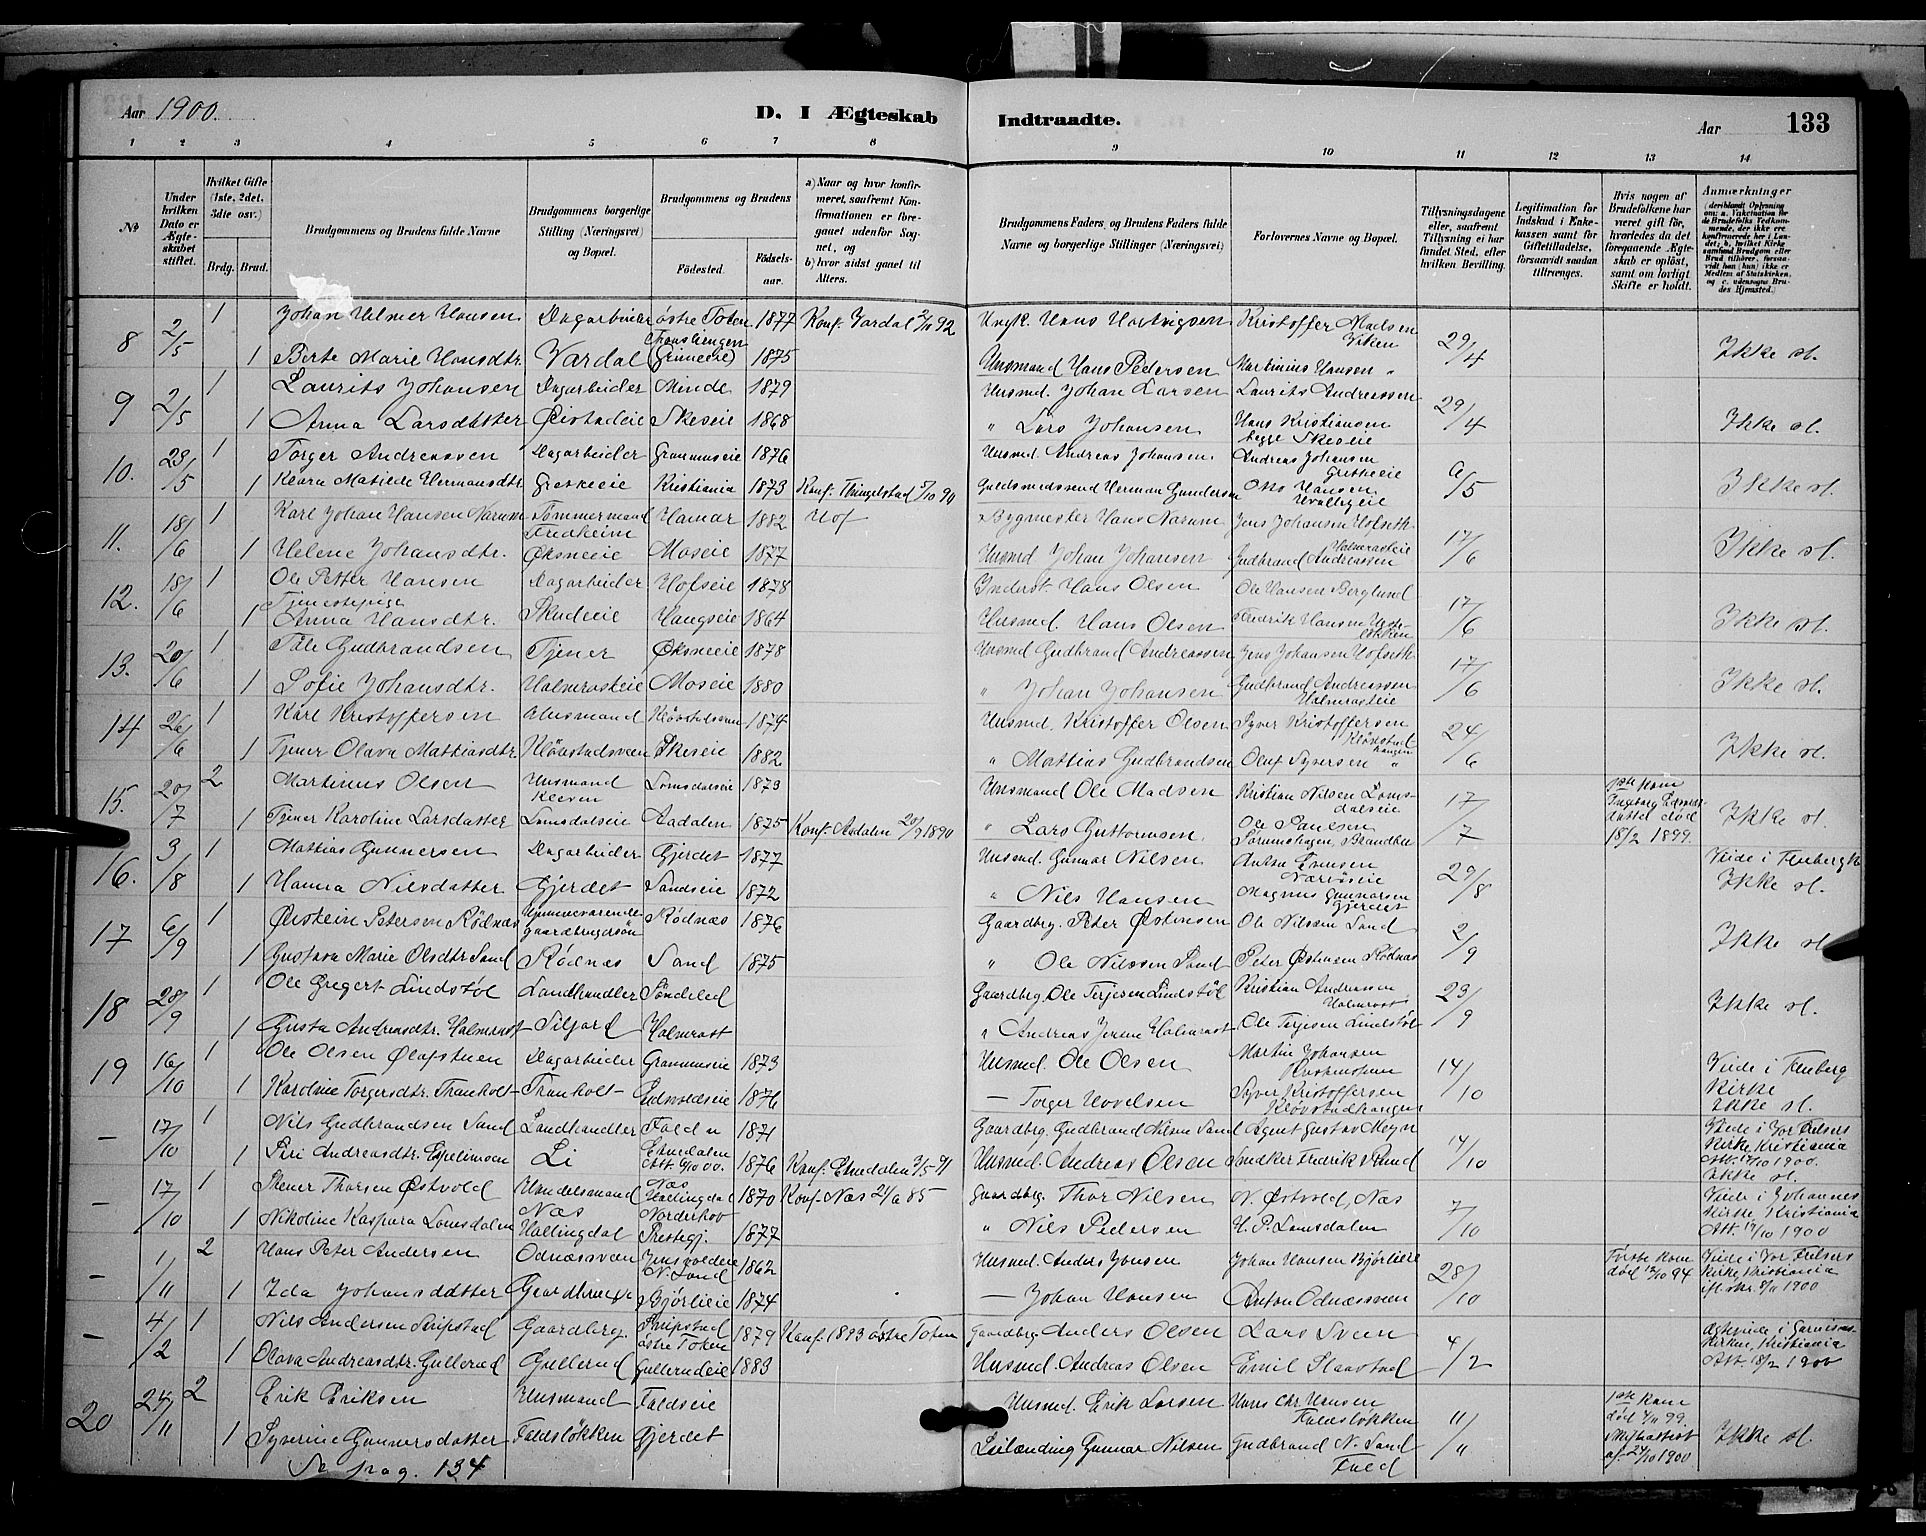 Aar 1900.
D. I Ægteskab Indtraadte.
Aar 133
1 2 3 4 5 6 7 8 9 10 11 12 13 14
No
Under hvilken Dato er Ægteskabet stiftet.
Hvilket Gifte (1ste, 2det, 3dte osv.)
Brdg. Brud.
Brudgommens og Brudens fulde Navne
Brudgommens borgerlige Stilling (Næringsvei) og Bopæl.
Brudgommens og Brudens
Fødested. Fødselsaar.
a) Naar og hvor konfirmeret, saafremt Konfirmationen er foregaaet udenfor Sognet, og
b) hvor sidst gaaet til Alters.
Brudgommens Faders og Brudens Faders fulde Navne og borgerlige Stillinger (Næringsvei)
Forlovernes Navne og Bopæl.
Tillysningsdagene eller, saafremt Tillysning ei har fundet Sted, efter hvilken Bevilling.
Legitimation for Indskud i Enkekassen samt for Giftetilladelse, forsaavidt saadan tiltrænges.
Hvis nogen af Brudefolkene har været gift før, hvorledes da det foregaaende Ægteskab er opløst, samt om lovligt Skifte er holdt.
Anmærkninger (deriblandt Oplysning om: a. Vakcination for de Brudefolks Vedkommende, der ikke ere konfirmerede her i Landet; b. hvilket Kirkesamfund Brudgom eller Brud tilhører, forsaavidt han (hun) ikke er Medlem af Statskirken, og c. udensogns Brudes Hjemsted.)
8 2/5 1 Johan Halmer Hansen Dagarbeider østre Toten 1877 Konf. Vardal 92 Ungk. Hans Hartvigsen Kristoffer Madsen Viken 29/4 Ikke sl.
1 Berte Marie Hansdtr. Vardal (Grimeeie) 1875 Husmand Hans Pedersen Martinius Hansen "
9 2/5 1 Laurits Johansen Dagarbeider Minde 1879 Husmd. Johan Larsen Laurits Andreassen 29/4 Ikke sl.
1 Anna Larsdatter Øistadeie Skeseie 1868 " Lars Johansen Hans Kristiansen begge Skeseie
10. 23/5 1 Torger Andreassen Dagarbeider Granumseie 1876 Husmd. Andreas Johansen. Andreas Johansen 6/5 Ikke sl.
1 Klara Matilde Hermansdtr. Kristiania 1873 Konf. Thingelstad 5/10 90 Guldsmedsvend Herman Gundersen Otto Hansen
11. 18/6 1 Karl Johan Hansen Narum Tømmermand Fredheim Hamar 1882 Hof Bygmester Hans Narum Jens Johansen Hofseth 17/6 Ikke sl.
1 Helene Johansdtr. Øksneeie Moseie 1877 Husmd Johan Johansen Gudbrand Andreassen Halmrasteie
12. 18/6 1 Ole Petter Hansen Dagarbeider Hofseie 1878 Inderst. Hans Olsen Ole Hansen Berglund 17/6 Ikke sl.
1 Tjenestepige Anna Hansdtr. Skadeeie Haugseie 1864 Husmd. Hans Olsen Fredrik Hansen
13. 20/6 1 Gudbrandsen Tjener Øksneeie 1878 Husmd Gudbrand Andreassen Jens Johansen Hofseth 17/6 Ikke sl.
1 Sofie Johansdtr. Halmrasteie Moseie 1880 " Johan Johansen Gudbrand Andreassen Halmrasteie
14 26/6 1 Karl Kristoffersen Husmand Kløvstadsveen 1874 Husmd. Kristoffer Olsen Syver Kristoffersen Kløvstadhaugen 24/6 Ikke sl.
1 Tjener Olava Mattiasdtr. Kløvstadsveen Skeseie 1882 " Mattias Gudbrandsen Oluf Syversen "
15. 20/7 2 Martinus Olsen Husmand Kleven Lomsdalseie 1873 Husmand Ole Madsen Kristian Nilsen Lomsdalseie 17/7 1ste Kone Ingeborg død 18/2 1899. Ikke sl.
1 Tjener Karoline Larsdatter Lomsdalseie Aadalen 1875 Konf. Aadalen 20/9 1890 " Lars Guttormsen. Ole Paulsen
16. 3/8 1 Mattias Gunnersen Dagarbeider Gjerdet 1877 Husmd. Gunnar Nilsen Anton Evensen 29/8 Viede i Fluberg K. Ikke sl.
1 Hanna Nilsdatter Gjerdet Sandseie 1872 " Nils Hansen Magnus Gunnarsen Gjerdet
17 6/9 1 Øistein Petersen Rødnæs gaardbrugersøn Rødnæs 1876 Gaardbrg. Peter Østensen Ole Nilsen Sand 2/9 Ikke sl.
1 Gustava Marie Olsdtr Sand Rødnæs Sand 1875 " Ole Nilssen Sand Peter Østensen Rødnæs
18 28/9 1 Ole Gregert Lindstøl Landhandler Søndeled Gaardbrg. Ole Terjesen Lindstøl Kristian Andreassen Halmrast 23/9 Ikke sl.
1 Gusta Andreasdtr. Halmrast Siljord Halmrast " Andreas Jensen Halmrast Ole Terjesen Lindstøl
19 16/10 1 Ole Olsen Olafstuen Dagarbeider Granumseie 1873 Husmd. Ole Olsen Martin Johansen 14/10 Viede i Fluberg Kirke Ikke sl.
1 Karoline Torgersdtr. Tranholt Tranholt Eidsvoldseie 1876 — Torger Hovelsen Syver Kristoffersen Kløvstadhaugen
– 17/10 1 Nils Gudbrandsen Sand Landhandler Fald n 1871 Gaardbrg. Gudbrand Nilsen Sand Agent Gustav Meyn 14/10 Viede i Vor Frelsers Kirke Kristiania Att. 17/10 1900. Ikke sl.
1 Siri Andreasdtr. Espelimoen Li Etnedalen 1876 Konf. Etnedalen 3/5 91 Husmd. Andreas Olsen Fredrik
– 17/10 1 Stener Thorsen Østvold Handelsmand Næs Næs Hallingdal 1870 Konf. Næs 21/6 85 Gaardbrg. Thor Nilsen N. Østvold, Næs 7/10 Viede i Johannes Kirke, Kristiania Att. 17/10 1900
1 Nikoline Kaspara Lomsdalen Hallingdal Norderhov Prestegj. 1877 " Nils Pedersen H. P. Lomsdalen
– 1/11 2 Hans Peter Andersen Odnæsveen N. Sand 1862 Husmd. Anders Jonsen Johan Hansen Bjørlieie 28/10 Første Kone død 12/10 94 Viede i Vor Frelsers Kirke Kristiania ifl. skr. 8/11 1900
1 Ida Johansdatter Bjørlieie 1874 — Johan Hansen Anton Odnæsveen
– 4/2 1 Nils Andersen Skripstad Gaardbrg. Skripstad østre Toten 1879 Konf. 1893 østre Toten Gaardbrg Anders Olsen Lars Sveen 4/2 Kirke, Kristiania Att. 18/2 1900
1 Olava Andreasdtr. Gullerud Gullerud Gullerudeie 1883 Husmd. Andreas Olsen Emil Staavstad
20 24/11 2 Erik Eriksen Husmand Faldseie Husmd. Erik Larsen Hans Chr. Hansen Faldsløkken 11/11 1ste Kone død 99. Skifteattest af 24/10 1900 Ikke sl.
1 Syverine Gunnersdatter Faldsløkken Gjerdet Leilænding Gunnar Nilsen Gudbrand N. Sand Fald
Se pag. 134